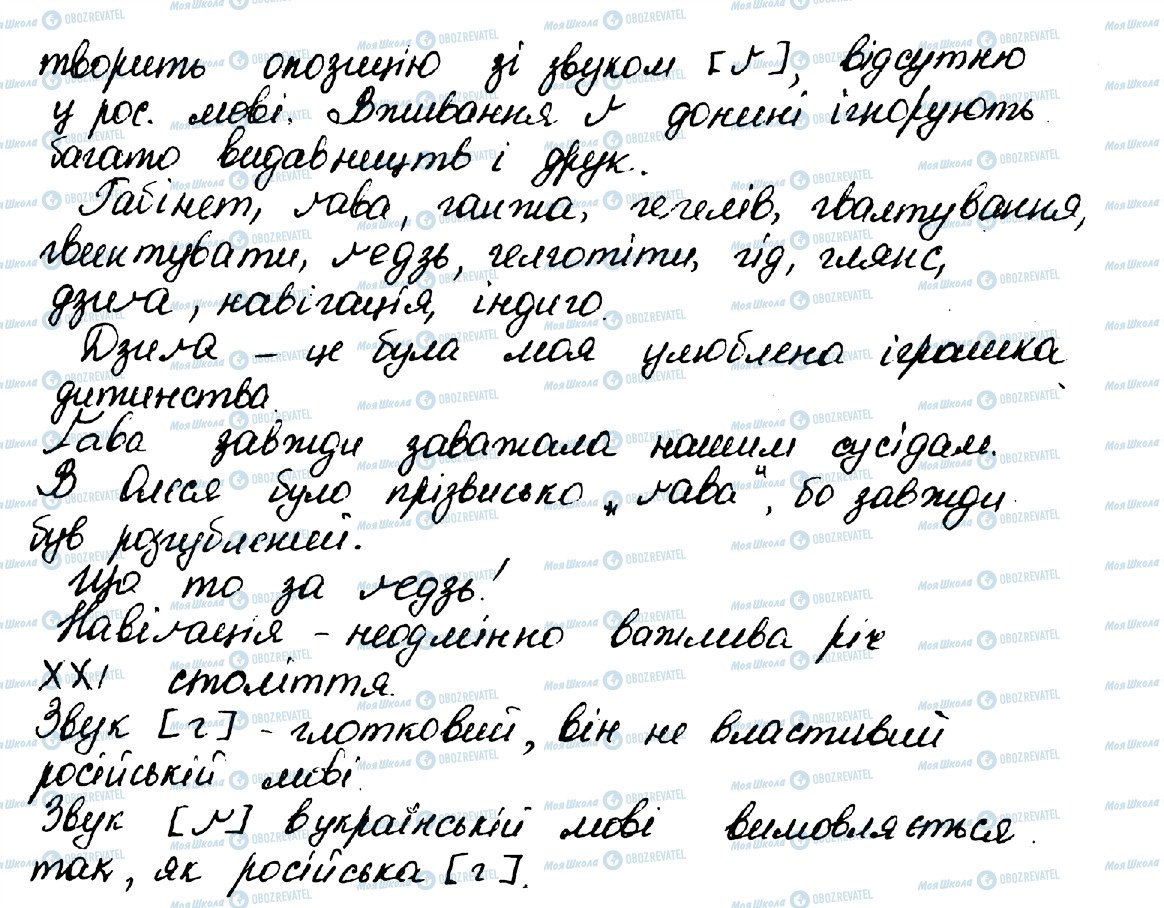 творить опозицію зі звуком [ґ], відсутню
у рос. мові. Вживання ґ донині ігнорують
багато видавництв і друк.
Габінет, ґава, ганжа, гегелів, гвалтування,
гвинтувати, ґедзь, гелготіти, гід, глянс,
дзиґа, навігація, індиго.
Дзиґа – це була моя улюблена іграшка
дитинства.
Ґава завжди заважала нашим сусідам.
В Олеся було прізвисько „ґава", бо завжди
був розгублений.
Що то за ґедзь!
Навіґація – неодмінно важлива річ
XXI століття.
Звук [г] – глотковий, він не властивий
російській мові.
Звук [ґ] в українській мові вимовляється
так, як російська [г].